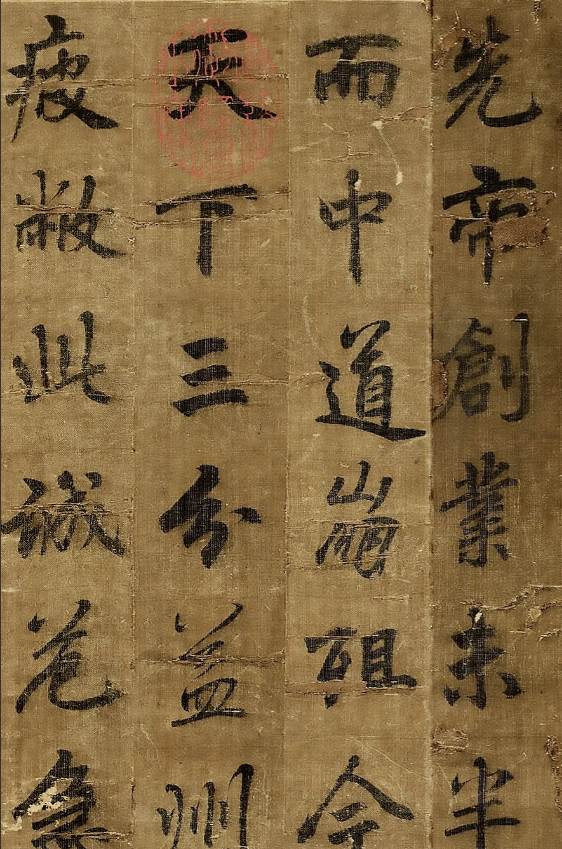 先帝創業未半
而中道崩殂今
天下三分益州
疲敝此誠危急